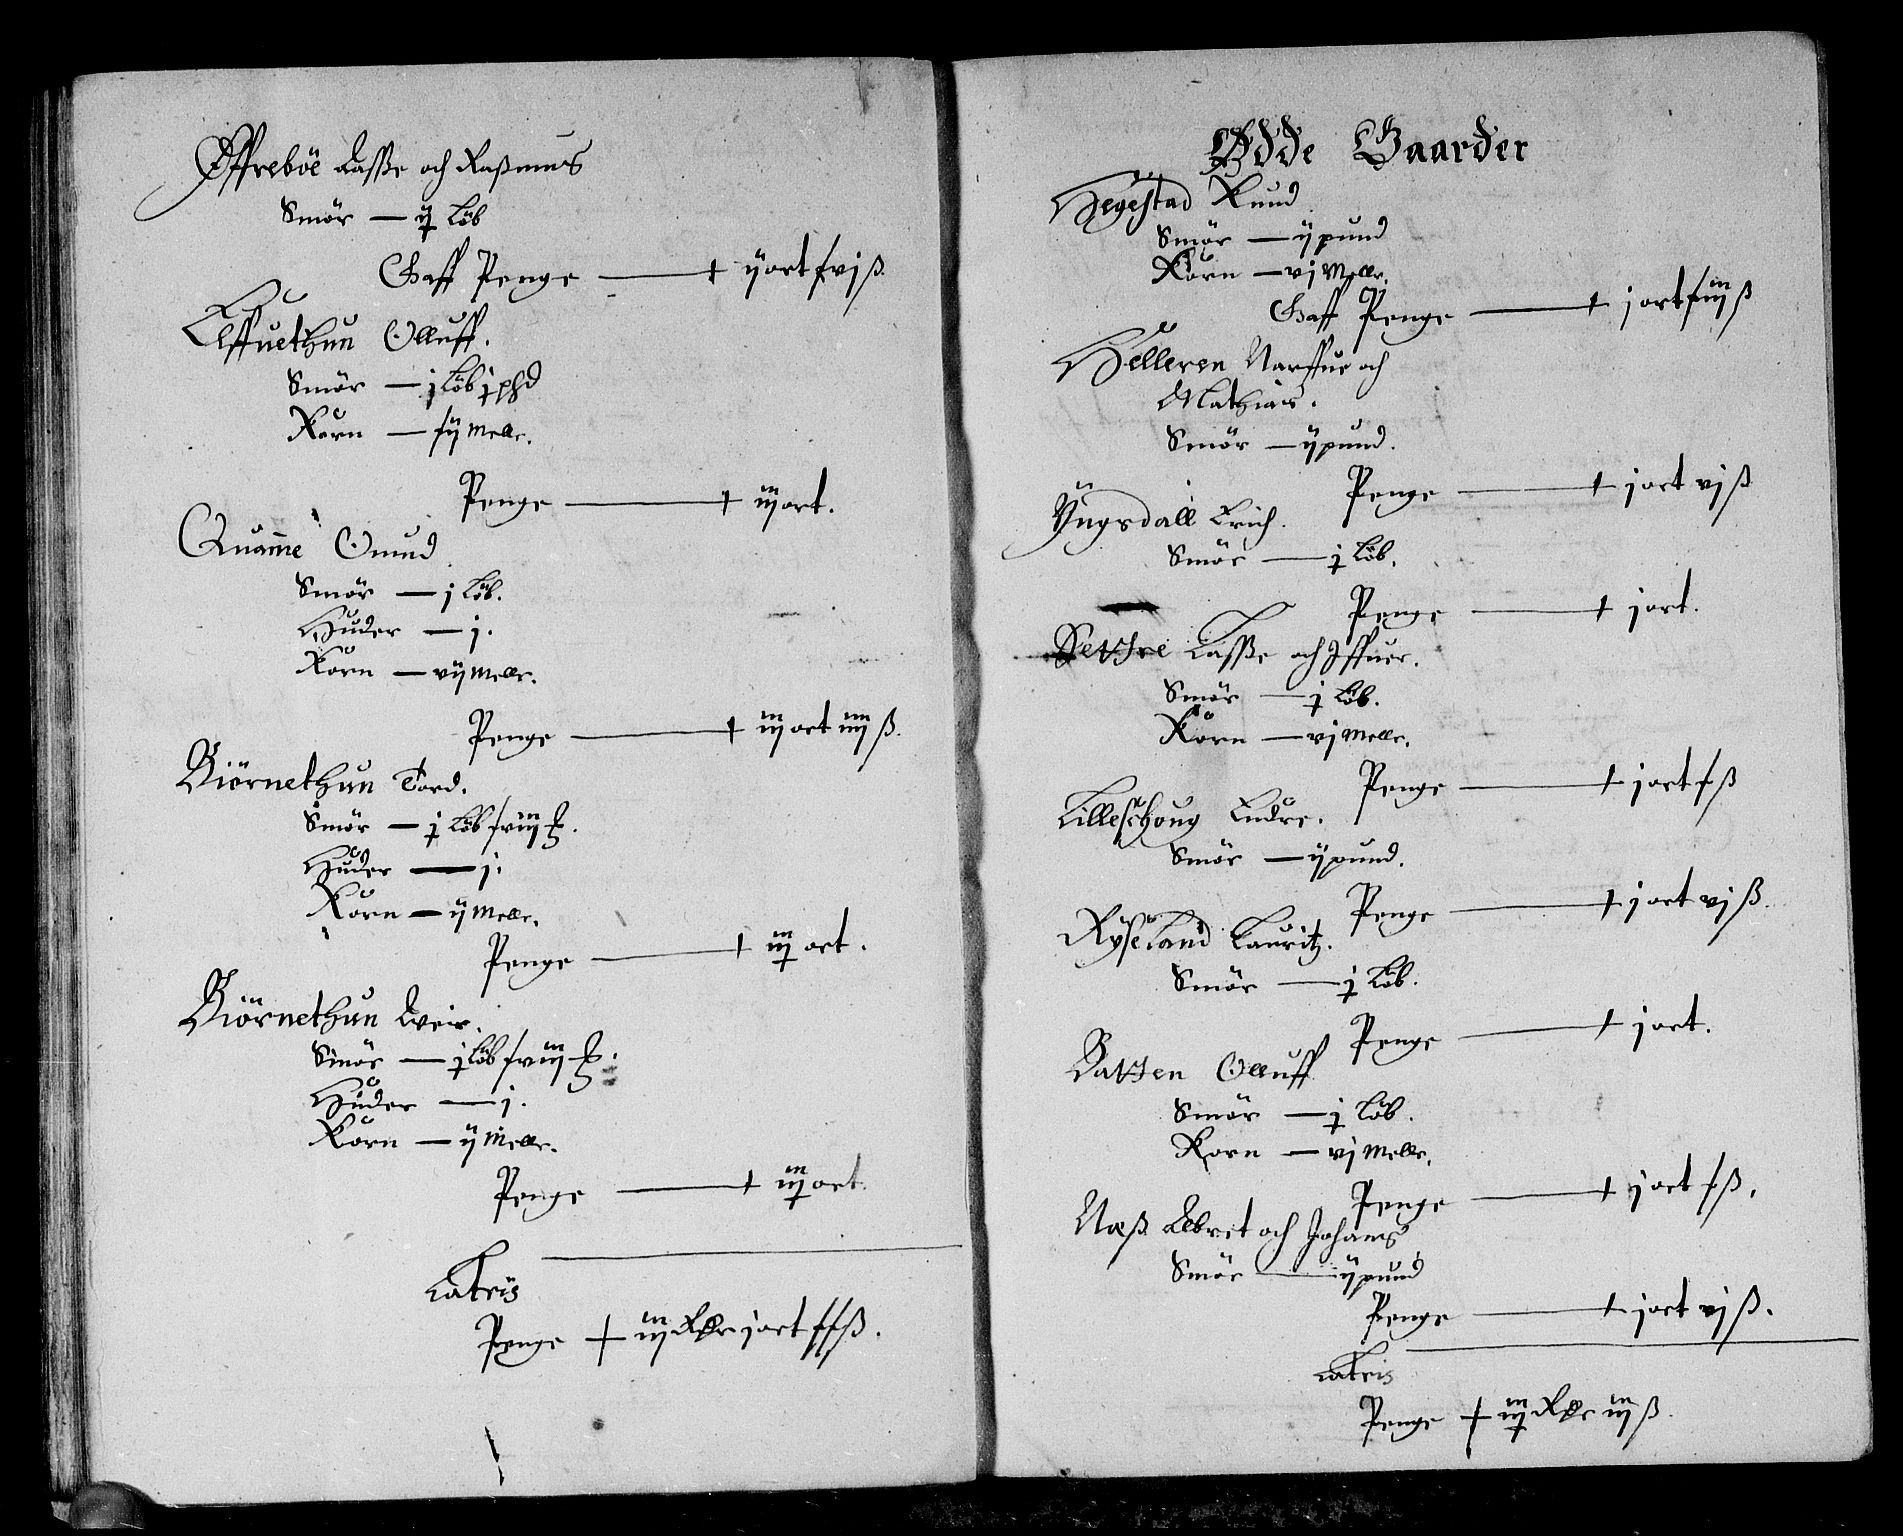 Øffrebøe Lasße och Raßmus
Smør — ij Løb
Gaff Penge — ij ort f vj ß.
Elffuethun Olluff.
Smør — j Løb j phd
Korn — f ij Melle.
Penge — iij ort.
Quamme Omund
Smør — j Løb.
Huder — j.
Korn — vij Melle.
Penge — iij ort iiij ß.
Biørnethun Tord.
Smør — j Løb f viij
Huder — j.
Korn — ij Melle.
Penge — iij ort.
Biørnethun
Smør — j Løb f viij
Huder — j.
Korn — ij Melle.
Penge — iij ort.
Latris
Penge iij Rdlr j ort ff ß.
Ødde Gaarder
Hegestad Knud
Smør — ij pund
Korn — vj Melle.
Gaff Penge — j ort f iij ß
Helleren Narffue och
Mathias.
Smør — ij pund.
Penge — j ort vj ß
Yngsdall Erich.
Smør — j Løb.
Penge — j ort.
Settre Lasße och Iffuer.
Smør — j Løb.
Korn — vj Melle.
Penge — j ort f ß
Lilleschoug Endre.
Smør — ij pund.
Penge — j ort vj ß.
Rysseland Lauritz.
Smør — j Løb.
Penge — j ort.
Batten Olluff
Smør — j Løb.
Korn — vj Melle.
Penge — j ort f ß.
Næß Elbret och Johans
Smør — ij pund
Penge — j ort vj ß.
Latris
Penge iij Rdlr iij ß.